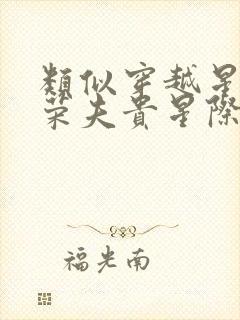 類似穿越星
榮夫貴星際
福光南